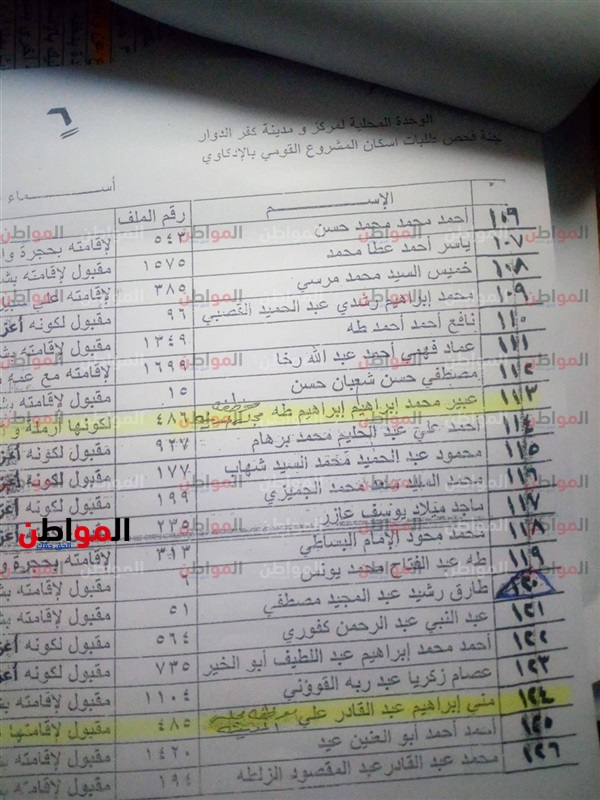 ٦
الوحدة المحلية لمركز و مدينة كفر الدوار
لجنة فحص طلبات اسكان المشروع القومي بالإدفاوي
أسماء
الإسم رقم الملف
١٠٦ أحمد محمد محمد حسن ٥٤٣ لإقامته بحجرة
١٠٧ ياسر أحمد عطا محمد ١٥٧٥ مقبول لإقامته
١٠٨ خميس السيد محمد مرسي ٣٨٥ لإقامته
١٠٩ محمد إبراهيم رشدي عبد الحميد القصبي ٩٦ مقبول لكونه
١١٠ نافع أحمد أحمد طه ١٣٤٩ مقبول لإقامته
١١١ عماد فهمي أحمد عبد الله رخا ١٦٩٩ لإقامته مع
١١٢ مصطفي حسن شعبان حسن ١٥ مقبول لإقامته
١١٣ عبير محمد إبراهيم إبراهيم طه ٤٨٦ لكونها أرملة
١١٤ أحمد علي عبد الحليم محمد برهام ٩٢٧ مقبول لكونه
١١٥ محمود عبد الحميد محمد السيد شهاب ١٧٧ مقبول لإقامته
١١٦ محمد السيد سعد محمد الجميزي ١٩٩ مقبول لكونه
١١٧ ماجد ميلاد يوسف عازر ٢٣٥
١١٨ محمد محمود الإمام البساطي ٣١٣ لإقامته بحجرة
١١٩ طه عبد الفتاح محمد يونس ٦ مقبول لإقامته
١٢٠ طارق رشيد عبد المجيد مصطفي ٥١ مقبول لإقامته
١٢١ عبد النبي عبد الرحمن كفوري ٥٦٤ مقبول لكونه
١٢٢ أحمد محمد إبراهيم عبد اللطيف أبو الخير ٧٣٥ مقبول لكونه
١٢٣ عصام زكريا عبد ربه القووني ١١٠٤ مقبول لإقامته
١٢٤ مني إبراهيم عبد القادر علي ٤٨٥ مقبول لإقامتها
١٢٥ أحمد أبو العنين عيد ١٤٢٠ مقبول لإقامته
١٢٦ محمد عبد القادر عبد المقصود الزلطه ١٩٤ مقبول لإقامته
المواطن